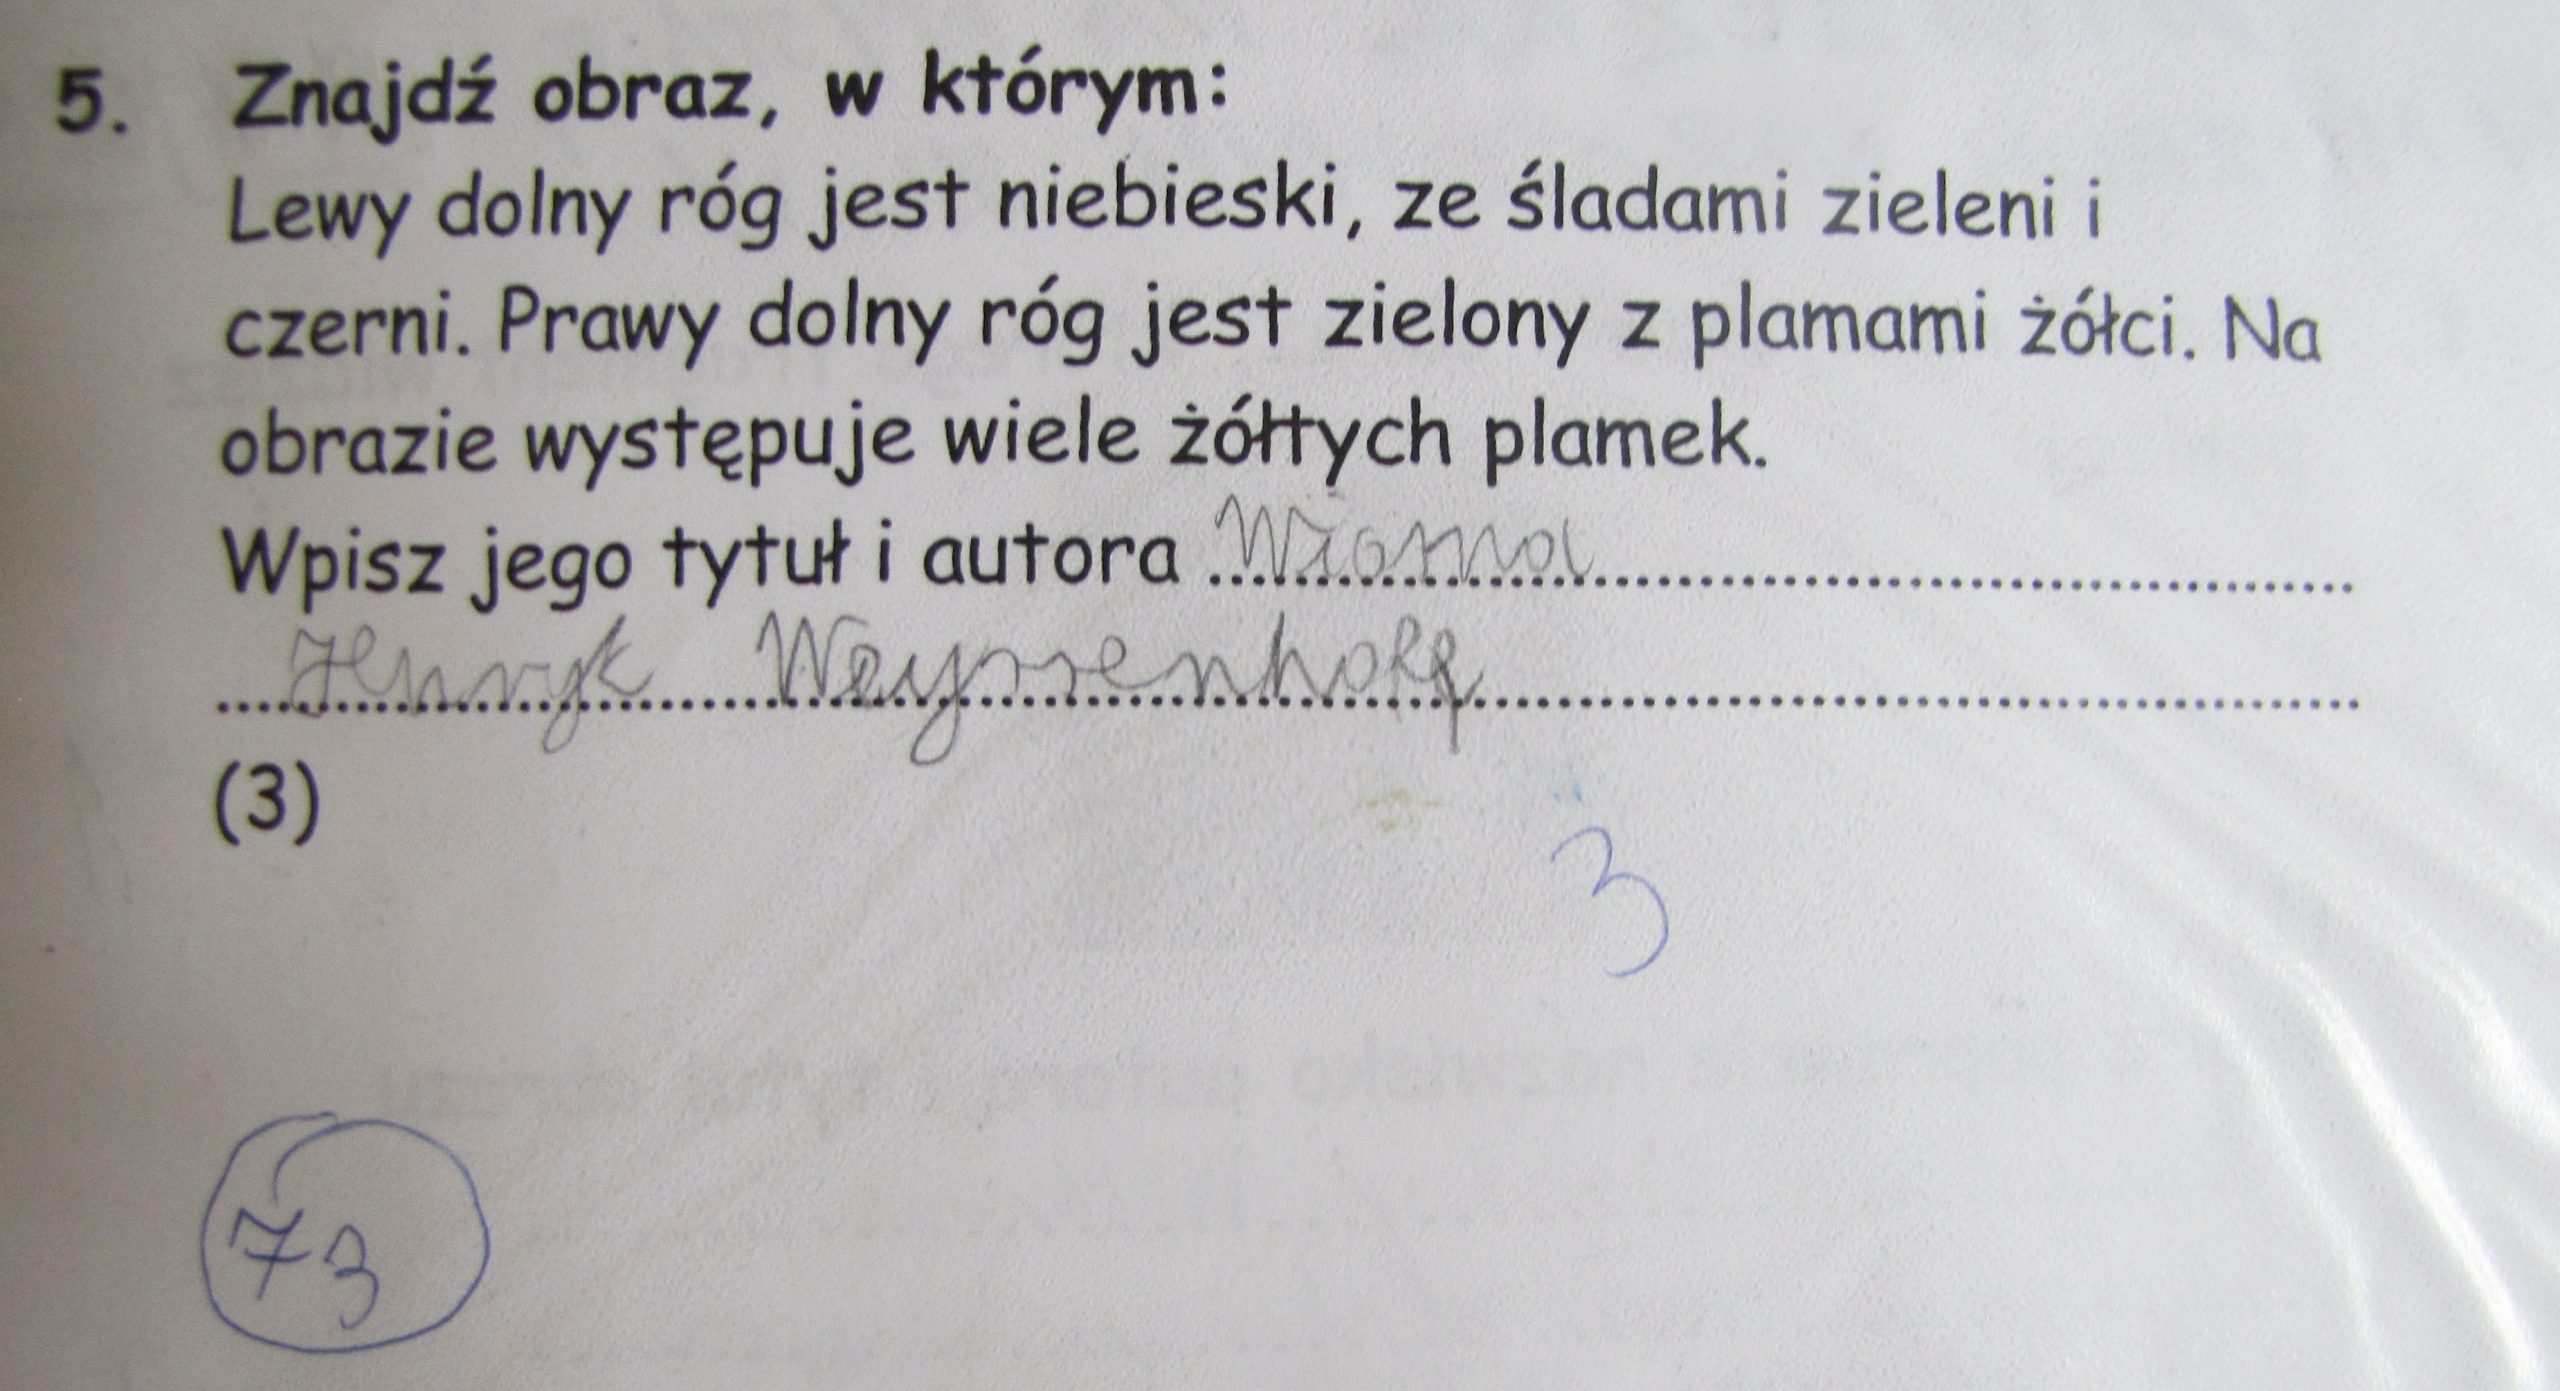 5. Znajdź obraz, w którym:
Lewy dolny róg jest niebieski, ze śladami zieleni i
czerni. Prawy dolny róg jest zielony z plamami żółci. Na
obrazie występuje wiele żółtych plamek.
Wpisz jego tytuł i autora Wiosna
Henryk Weyssenhoff
(3)
3
73